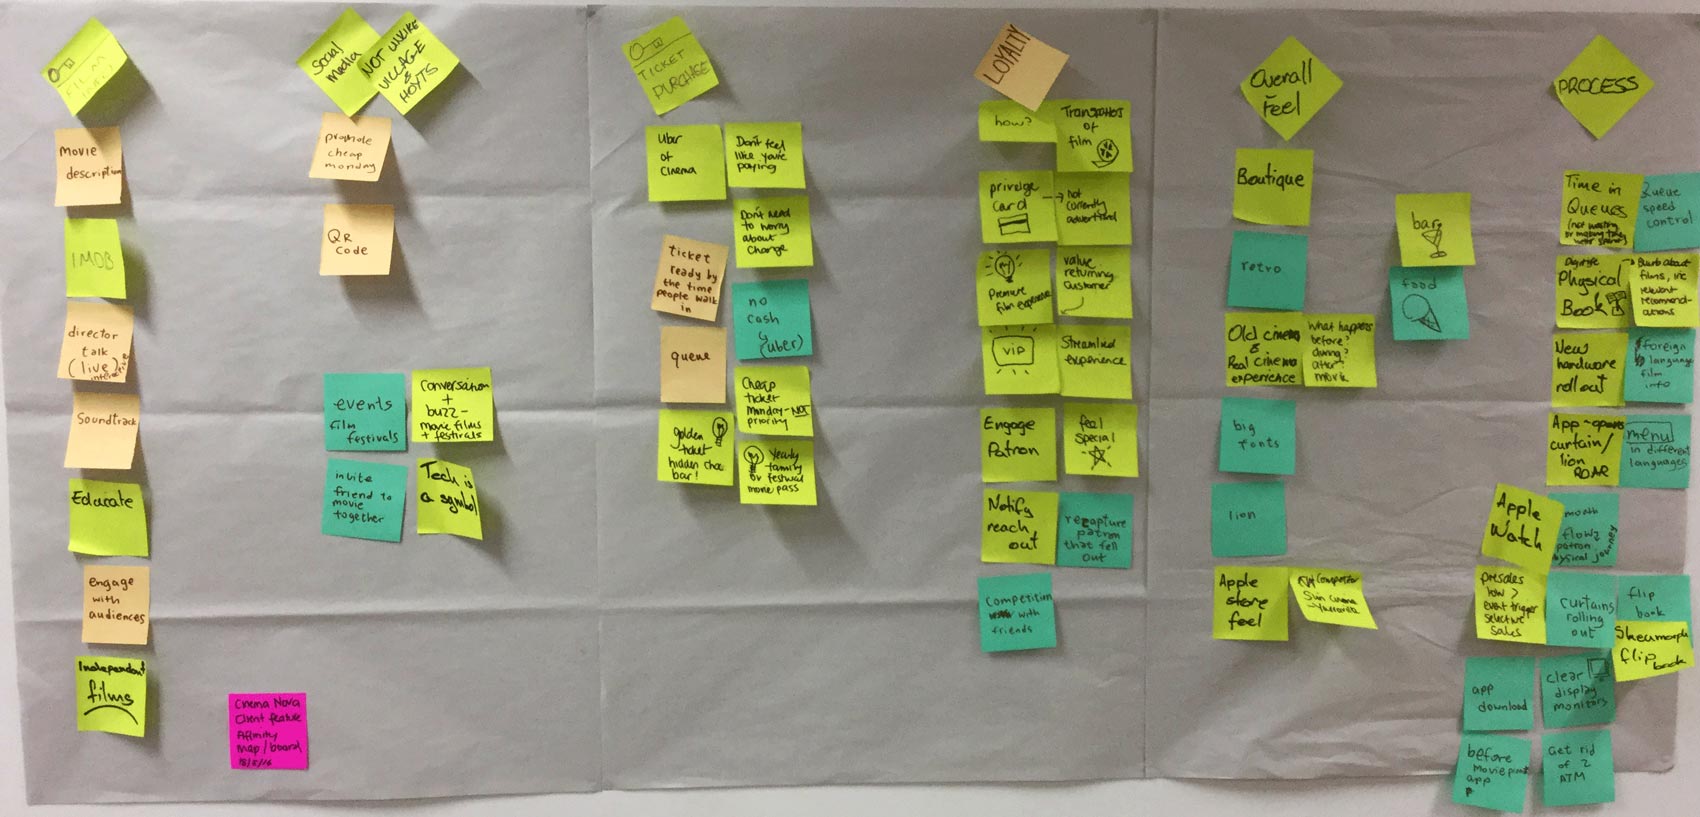 FILM
Movie
description
IMDB
director
talk
(live)
Soundtrack
Educate
engage
with
audiences
Independent
films
Social
media
NOT UNLIKE
VILLAGE
&
HOYTS
promote
cheap
monday
QR
code
events
film
festivals
Conversation
+
buzz-
movie films
+ festivals
invite
friend to
movie
together
Tech is
a symbol
Cinema Nova
Client feature
Affinity
Map/board
TICKET
PURCHASE
Uber
of
Cinema
Don't feel
like you're
paying
Don't need
to worry
about
change
ticket
ready by
the time
people walk
in
no
cash
(uber)
queue
Cheap
ticket
Monday-NOT
priority
golden
ticket
hidden choc
bar!
Yearly
family
or festival
movie pass
LOYALTY
how?
of
film
privelge
card
not
currently
advertised
Premiere
film experience
value
returning
customer
VIP
Streamlined
experience
Engage
Patron
feel
special
Notify
reach
out
recapture
patron
that fell
out
Competition
with
friends
Overall
Feel
Boutique
retro
bar
food
Old cinema
&
Real Cinema
experience
What happens
before?
during?
after?
movie
big
fonts
lion
Apple
store
feel
PROCESS
Time in
Queues
Queue
speed
control
Physical
Book
Blurb about
films, inc
relevant
recommend-
ations
New
hardware
roll out
foreign
language
film
info
App-opens
curtain/
lion
ROAR
menu
in different
languages
Apple
Watch
flow
patron
physical journey
presales
low >
event trigger
selective
sales
curtains
rolling
out
flip
book
Skeumorph
flip
book
app
download
clear
display
monitors
before
movie
app
Get rid
of 2
ATM